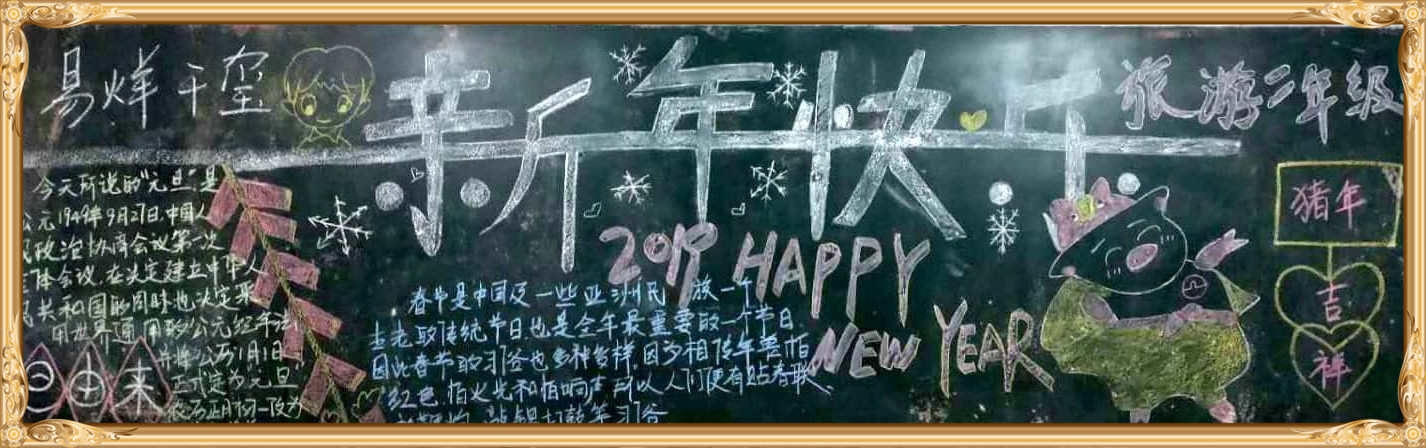 易烊千玺
新年快乐
旅游二年级
今天所说的“元旦”是
公元1949年9月27日,中国人
民政治协商会议第一次
全体会议,在决定建立中华人
民共和国的同时也决定采
用世界通用的公元纪年法
并将公历1月1日
正式定为元旦
农历正月初一改为
由来
2019 HAPPY
NEW YEAR
春节是中国及一些亚洲民族一个
古老的传统节日,也是全年最重要的一个节日,
因此春节的习俗也多种多样,因为相传年兽怕
红色,怕火光和怕响声,所以人们便有贴春联、
敲锣打鼓等习俗
猪年
吉
祥